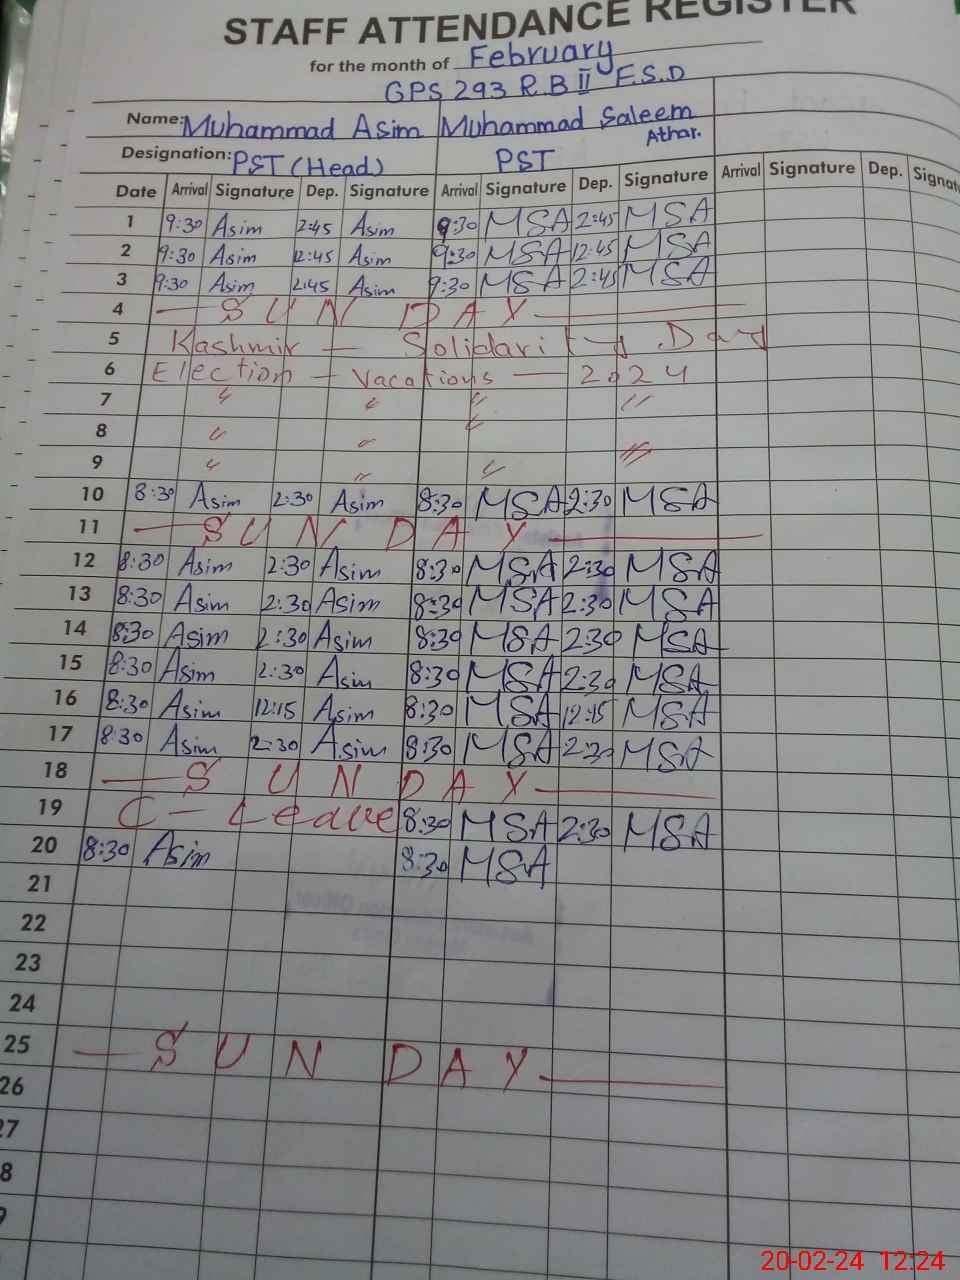 STAFF ATTENDANCE REGISTER
for the month of February
GPS 293 R.B II F.S.D
Name: Muhammad Asim Muhammad Saleem Athar.
Designation: PST (Head) PST
Date Arrival Signature Dep. Signature Arrival Signature Dep. Signature Arrival Signature Dep. Signat
1 9:30 Asim 2:45 Asim 9:30 MSA 2:45 MSA
2 9:30 Asim 12:45 Asim 9:30 MSA 12:45 MSA
3 9:30 Asim 2:45 Asim 9:30 MSA 2:45 MSA
4 — S U N D A Y —
5 Kashmir — Solidarity Day
6 Election — Vacations — 2024
7 〃 〃 〃 〃
8 〃 〃 〃
9 〃 〃 〃 〃
10 8:30 Asim 2:30 Asim 8:30 MSA 2:30 MSA
11 — S U N D A Y —
12 8:30 Asim 2:30 Asim 8:30 MSA 2:30 MSA
13 8:30 Asim 2:30 Asim 8:30 MSA 2:30 MSA
14 8:30 Asim 2:30 Asim 8:30 MSA 2:30 MSA
15 8:30 Asim 2:30 Asim 8:30 MSA 2:30 MSA
16 8:30 Asim 12:15 Asim 8:30 MSA 12:15 MSA
17 8:30 Asim 2:30 Asim 8:30 MSA 2:30 MSA
18 — S U N D A Y —
19 C - Leave 8:30 MSA 2:30 MSA
20 8:30 Asim 8:30 MSA
21
22
23
24
25 — S U N D A Y —
26
27
8
9
20-02-24 12:24